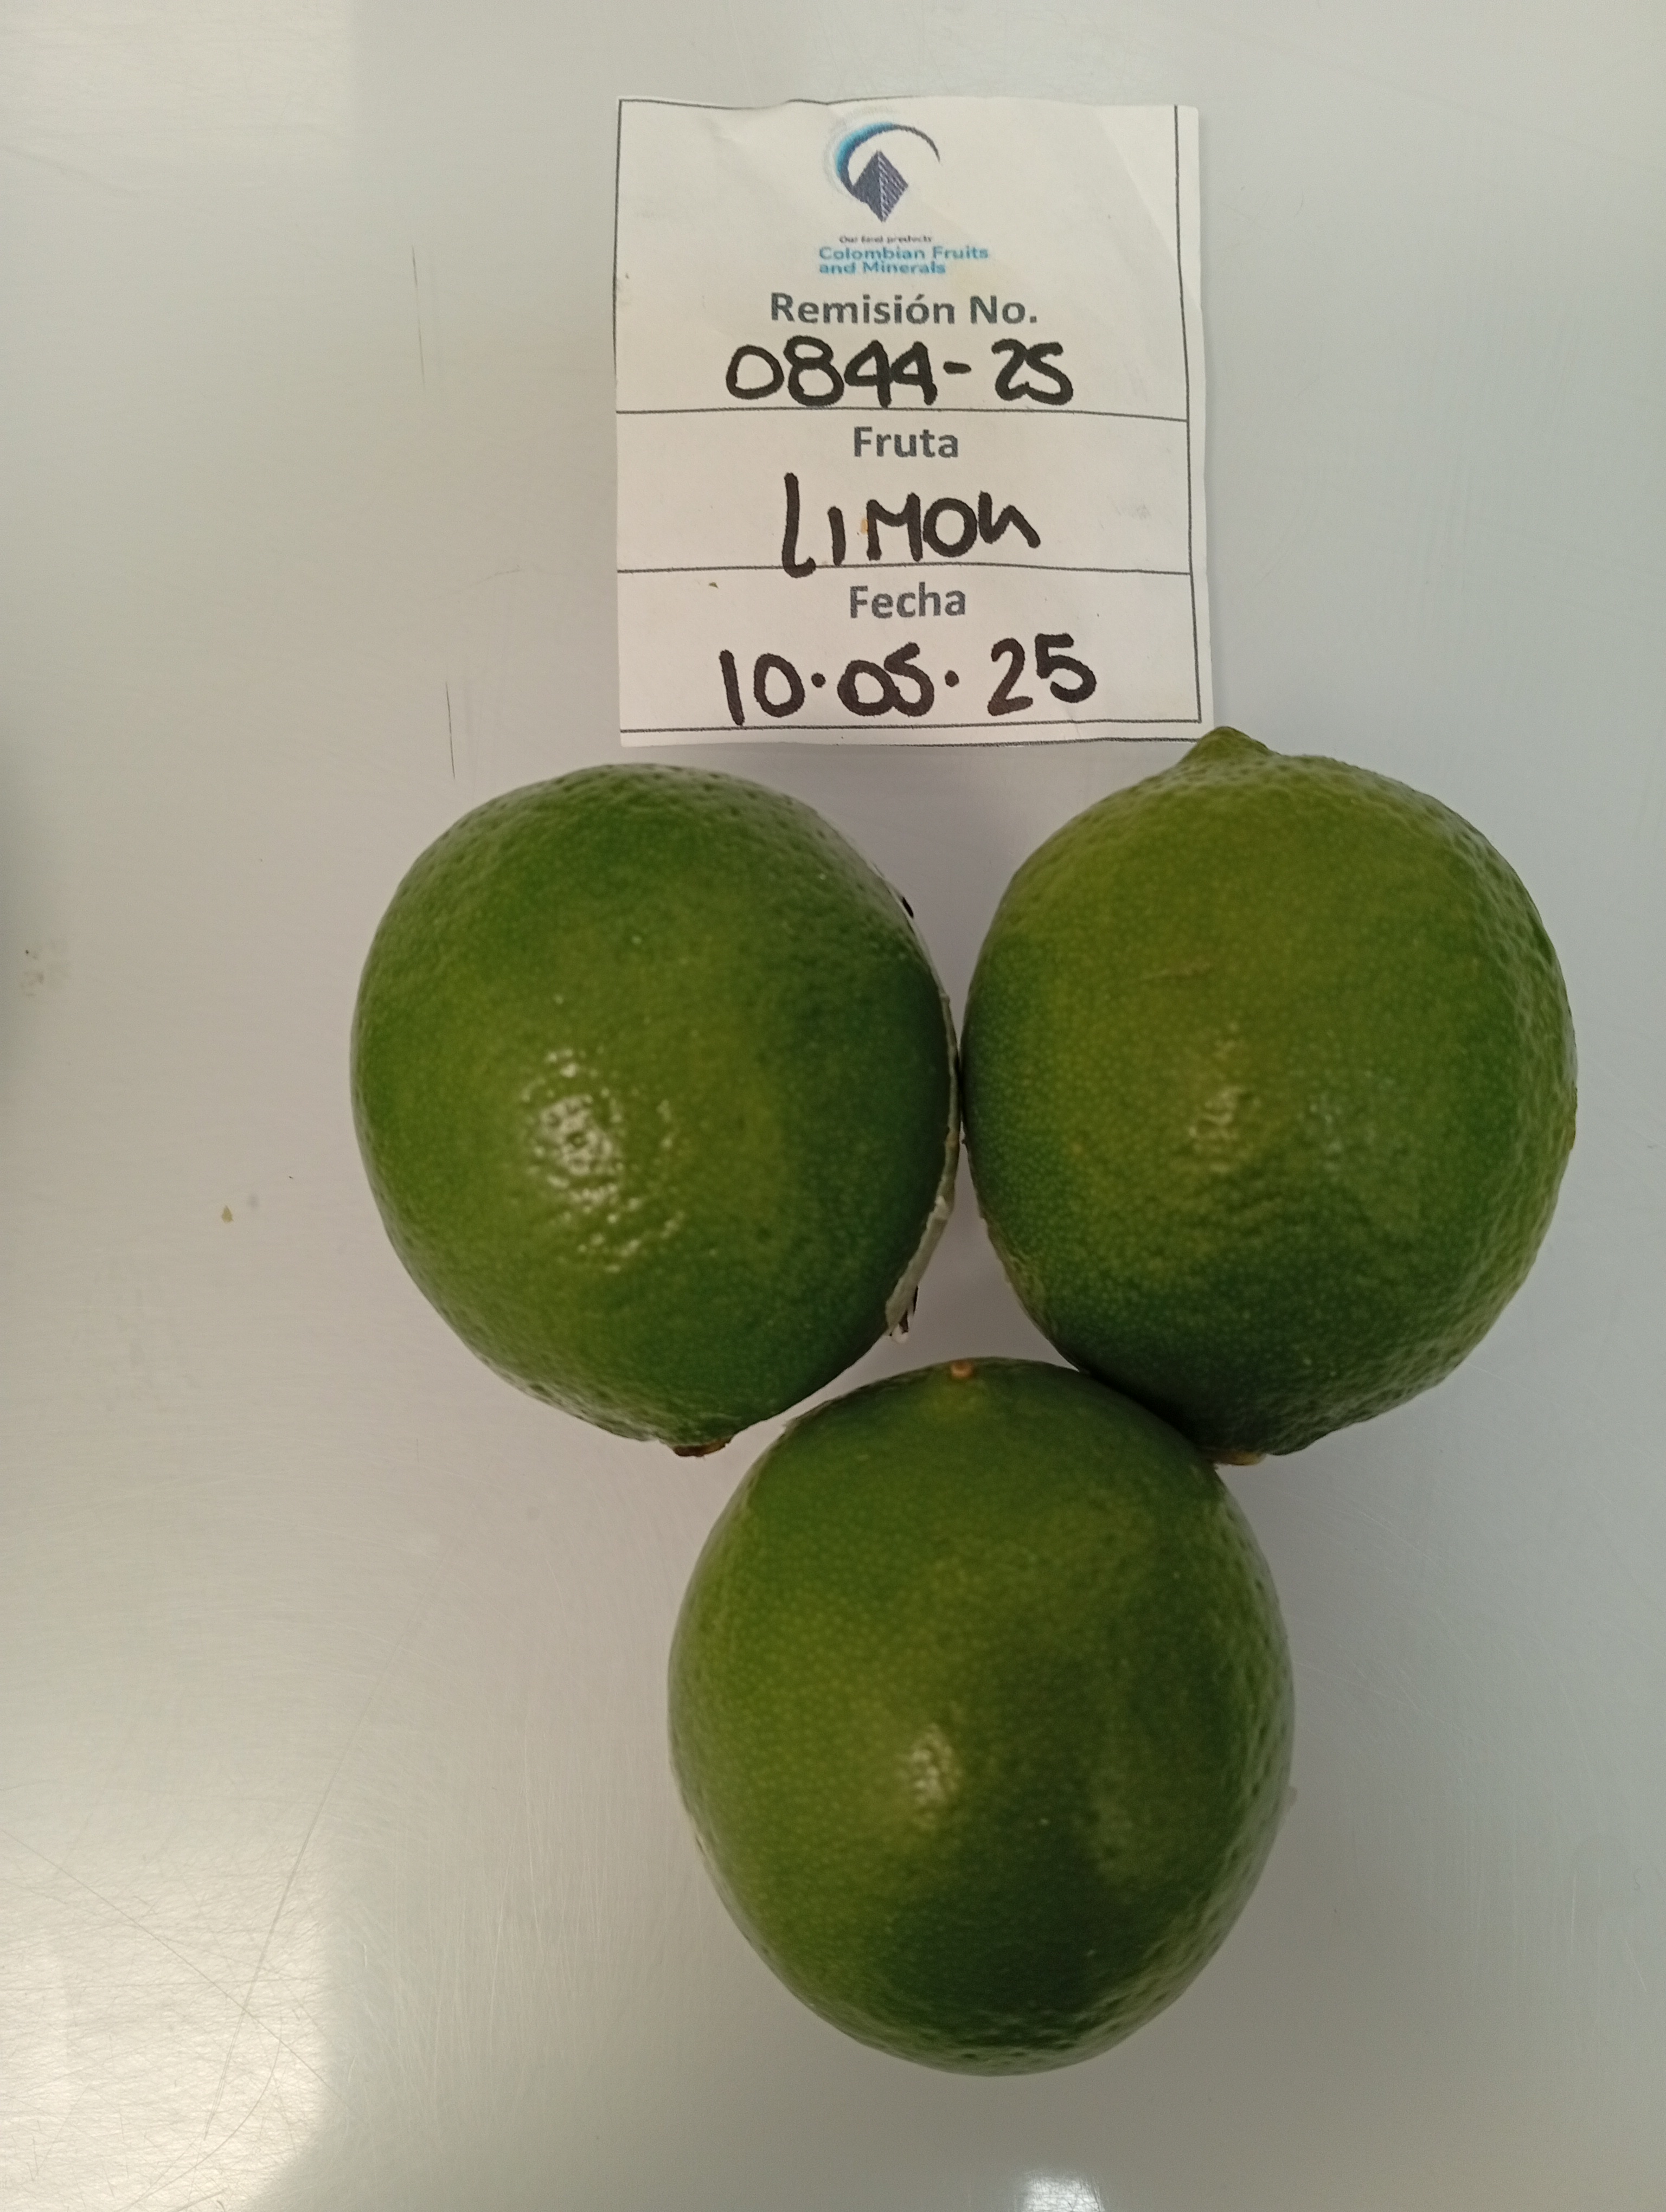 Our best products
Colombian Fruits
and Minerals
Remisión No.
0844-25
Fruta
LIMON
Fecha
10.05.25